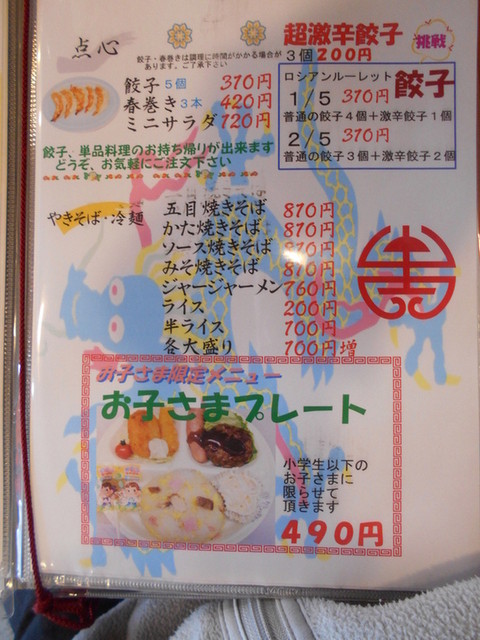 点心
餃子・春巻きは調理に時間がかかる場合が
あります。ご了承下さい
餃子 5個 370円
春巻き 3本 420円
ミニサラダ 120円
餃子、単品料理のお持ち帰りが出来ます
どうぞ、お気軽にご注文下さい
超激辛餃子
挑戦
3個 200円
ロシアンルーレット 餃子
1/5 370円
普通の餃子4個+激辛餃子1個
2/5 370円
普通の餃子3個+激辛餃子2個
やきそば・冷麺
五目焼きそば 810円
かた焼きそば 810円
ソース焼きそば 810円
みそ焼きそば 810円
ジャージャーメン 760円
ライス 200円
半ライス 100円
各大盛り 100円増
お子さま限定メニュー
お子さまプレート
小学生以下の
お子さまに
限らせて
頂きます
490円